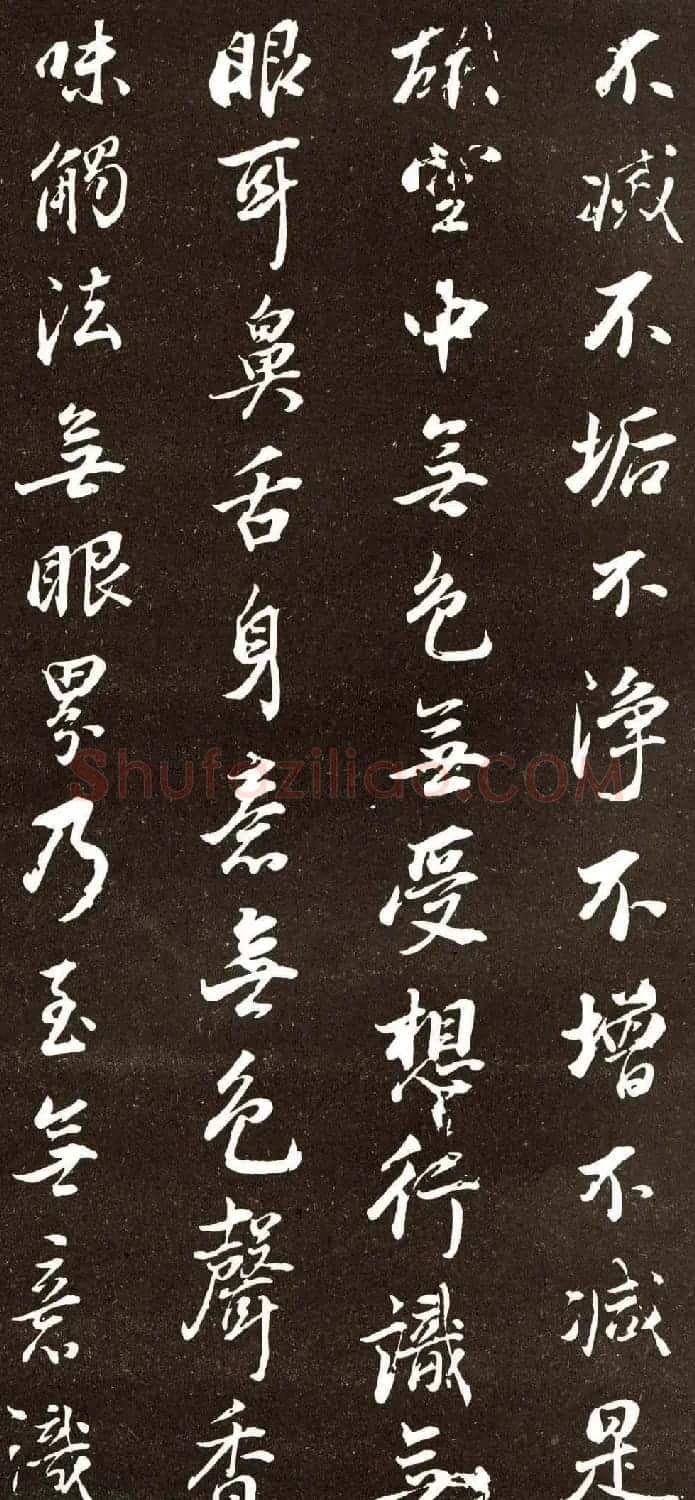 不滅不垢不淨不增不減是
故空中無色無受想行識無
眼耳鼻舌身意無色聲香
味觸法無眼界乃至無意識
Shufaziliao.COM